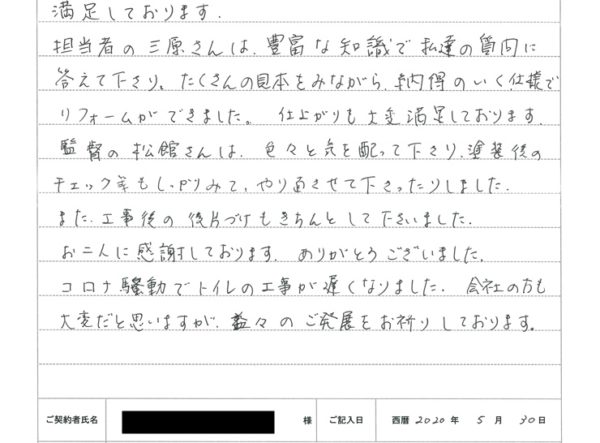 満足しております.
担当者の三原さんは、豊富な知識で私達の質問に
答えて下さり。たくさんの見本をみながら、納得のいく仕様で
リフォームができました。 仕上がりも大変満足しております.
監督の松館さんは、色々と気を配って下さり、塗装後の
チェック等もしっかりみて、やり直させて下さったりしました.
また、工事後の後片づけもきちんとして下さいました.
お二人に感謝しております. ありがとうございました.
コロナ騒動でトイレの工事が遅くなりました. 会社の方も
大変だと思いますが、益々のご発展をお祈りしております。
ご契約者氏名 様 ご記入日 西暦 2020 年 5 月 30 日